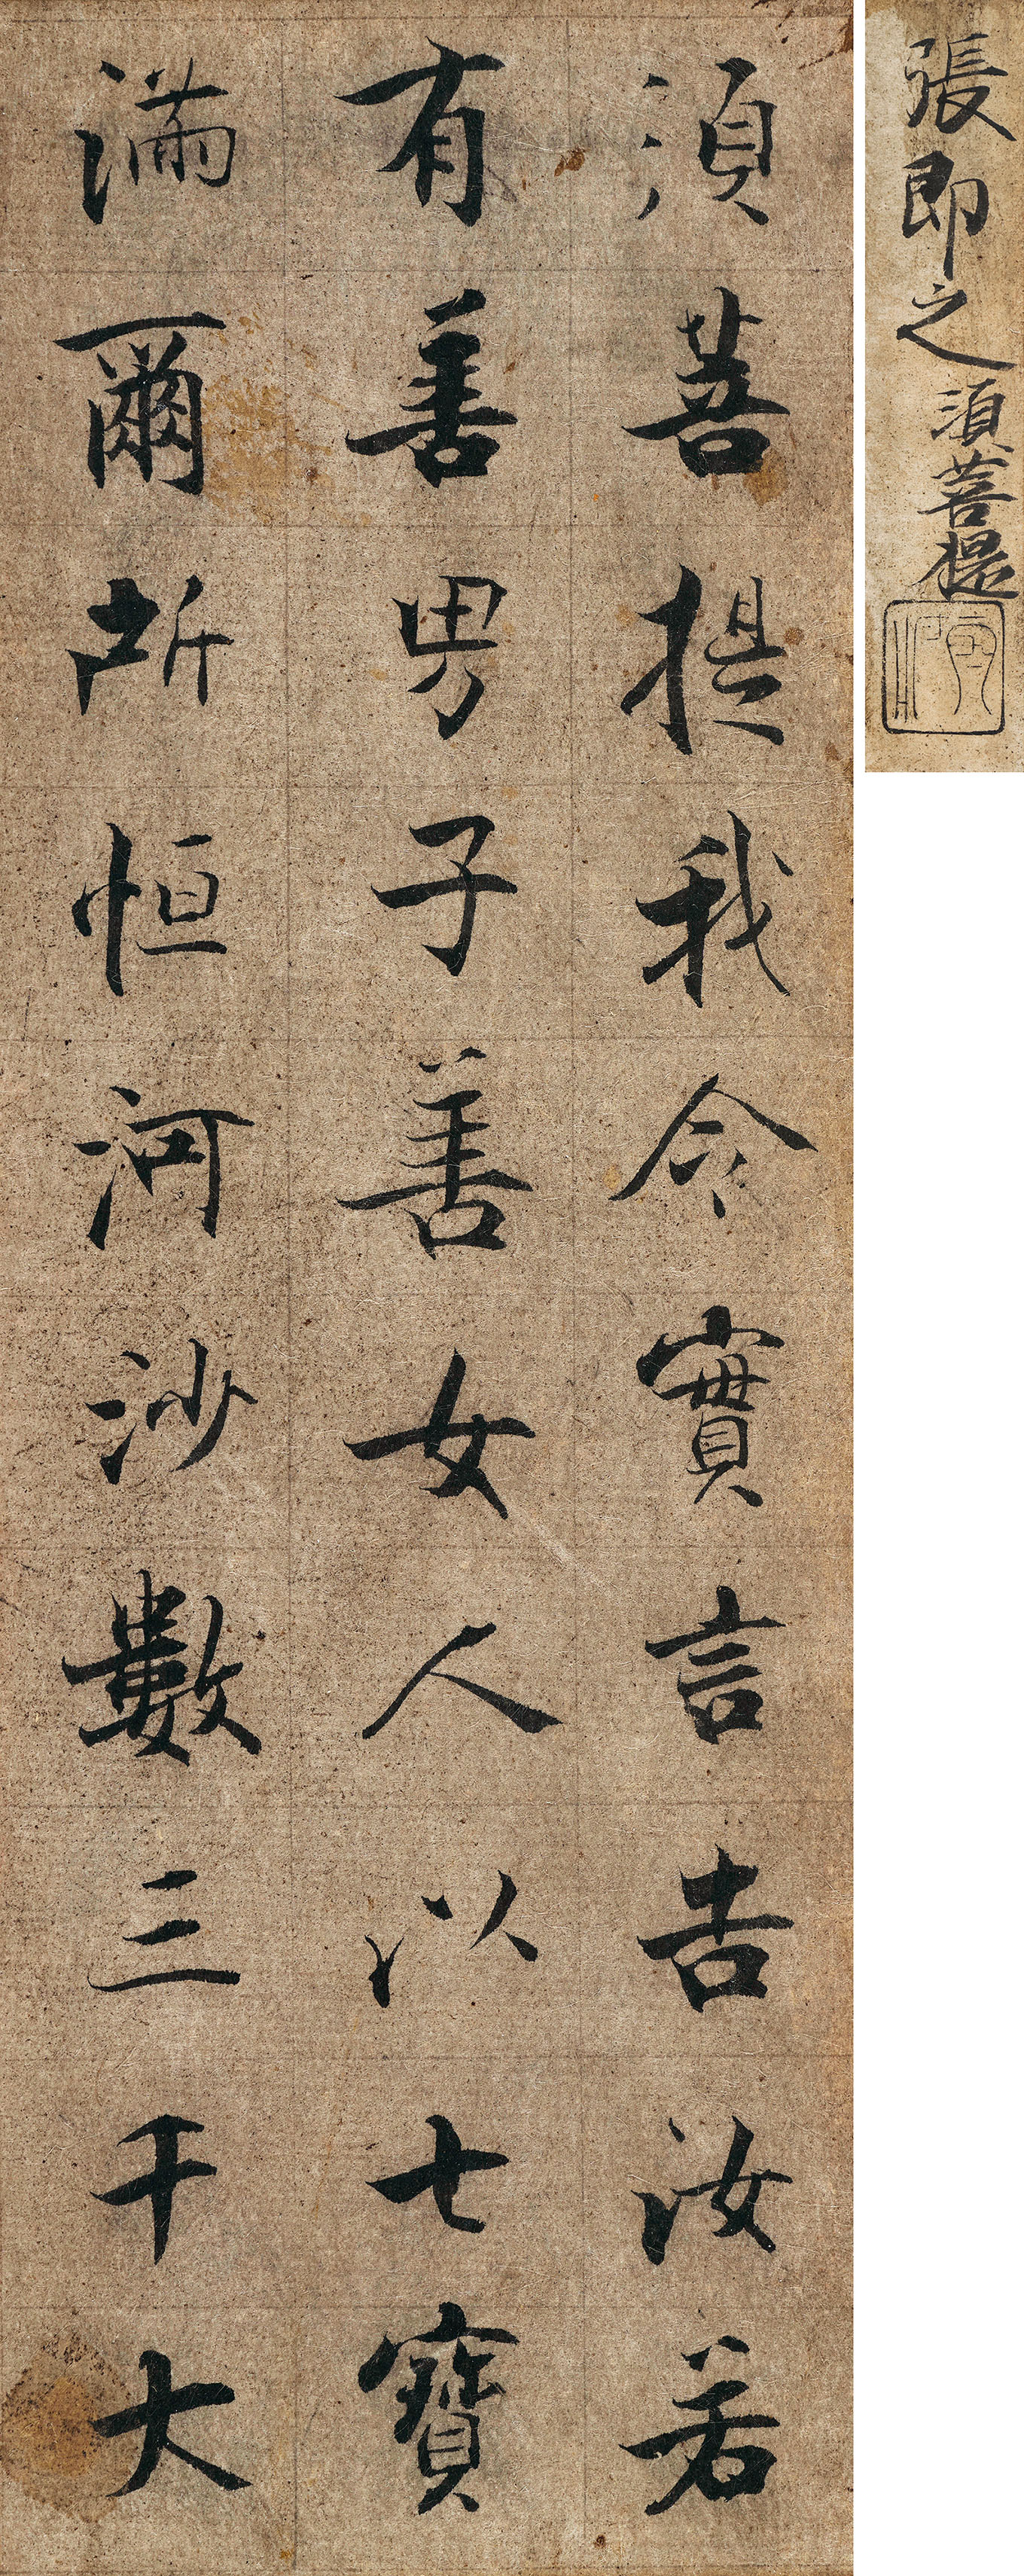 張即之須菩提
須菩提我今實言告汝若
有善男子善女人以七寶
滿爾所恒河沙數三千大